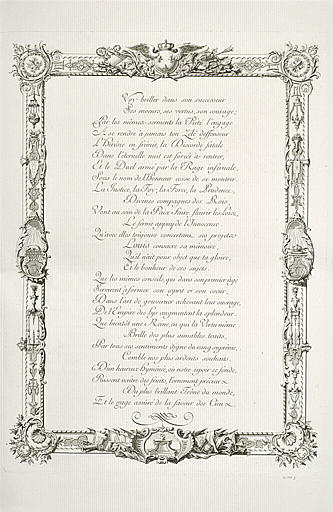 Voy briller dans son successeur
Ses moeurs, ses vertus, son courage;
Par les mêmes serments la Pieté l'engage
A se rendre à jamais ton Zelé deffenseur
L'Hérésie en frémit, la Discorde fatale
Dans l'éternelle nuit est forcée de rentrer,
Et le Duel armé par la Rage infernale,
Sous le nom de l'Honneur cesse de se montrer.
La Justice, la Foy, la Force, la Prudence,
Divines compagnes des Rois,
Vont au sein de la Paix faire fleurir les loix,
Le ferme appuy de l'Innocence.
Qu'avec elles toujours concertant ses projets
Louis consacre sa mémoire,
Qu'il n'eut pour objet que ta gloire,
Et le bonheur de ses sujets.
Que les mêmes conseils, qui dans son premier âge
Servirent à former son esprit et son coeur,
Dans l'art de gouverner achevant leur ouvrage,
De l'Empire des lys augmentent la splendeur.
Que bientôt une Reine, en qui la Vertu même
Brille des plus aimables traits,
Par tous ses sentiments digne du rang suprême,
Comble nos plus ardents souhaits.
D'un heureux Hymenée, où notre espoir se fonde,
Puissent naitre des fruits, l'ornement precieux
Du plus brillant Trône du monde,
Et le gage assuré de la faveur des Cieux.